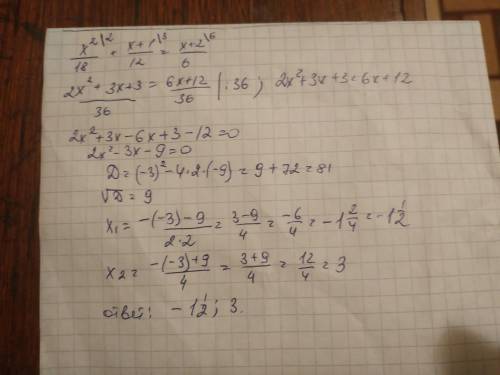 x²\2/18 + x+1\3/12 = x+2\6/6
2x²+3x+3/36 = 6x+12/36 |·36 ; 2x²+3x+3=6x+12
2x²+3x-6x+3-12=0
2x²-3x-9=0
D=(-3)²-4·2·(-9)=9+72=81
√D=9
x₁= -(-3)-9/2·2 = 3-9/4 = -6/4 = -1 2/4 = -1 1/2
x₂= -(-3)+9/4 = 3+9/4 = 12/4 = 3
ответ: -1 1/2; 3.